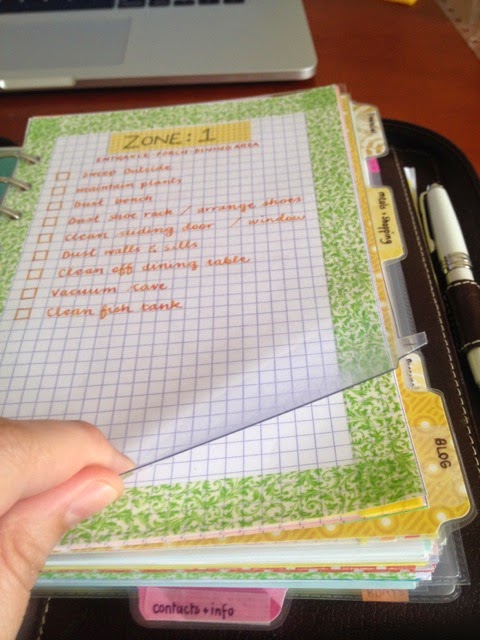 ZONE: 1
ENTRANCE PORCH DINING AREA
Sweep Outside
Maintain plants
Dust bench
Dust shoe rack / arrange shoes
Clean sliding door / window
Dust walls & sills
Clean off dining table
Vacuum
Clean fish tank
meals + shopping
BLOG
contacts + info